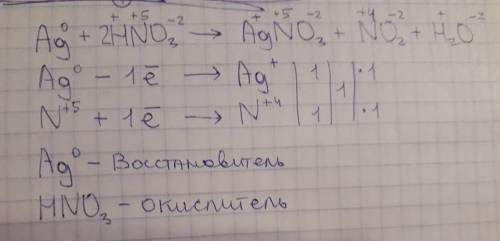 Ag⁰ + 2H⁺N⁺⁵O₃⁻² → Ag⁺N⁺⁵O₃⁻² + N⁺⁴O₂⁻² + H₂⁺O⁻²
Ag⁰ – 1ē → Ag⁺ | 1 | 1 | ·1
N⁺⁵ + 1ē → N⁺⁴ | 1 | ·1
Ag⁰ – Восстановитель
HNO₃ – окислитель